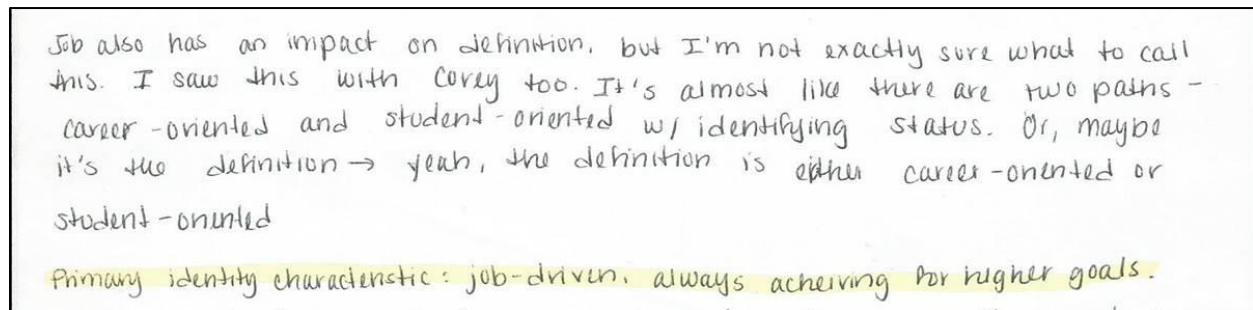 Job also has an impact on definition, but I'm not exactly sure what to call
this. I saw this with Corey too. It's almost like there are two paths -
career-oriented and student-oriented w/ identifying status. Or, maybe
it's the definition → yeah, the definition is either career-oriented or
student-oriented
Primary identity characteristic: job-driven, always acheiving for higher goals.